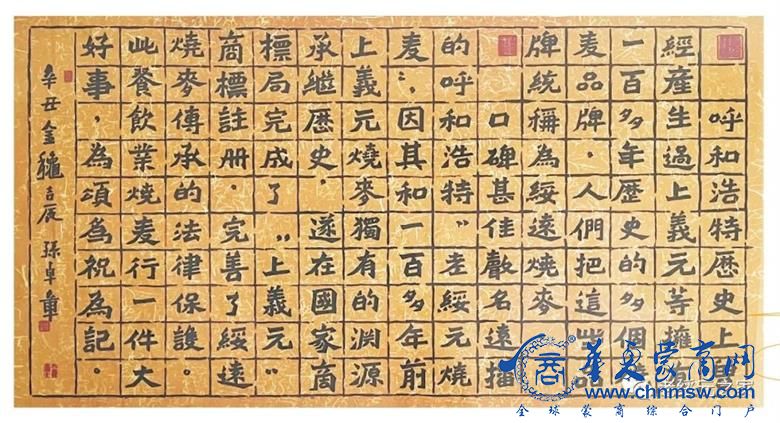 呼和浩特歷史上
經產生過上義元等擁有
一百多年歷史的多個
麦品牌，人們把這些品
牌統稱為綏遠燒麥
口碑甚佳聲名遠播
的呼和浩特“老綏元燒
麦”，因其和一百多年前
上義元燒麥獨有的淵源
承繼歷史。遂在國家商
標局完成了“上義元”
商標註册。完善了綏遠
燒麥傳承的法律保護。
此餐飲業燒麦行一件大
好事，為頌為祝為記。
辛丑金穐吉辰 孫卓章
商 华夏蒙商网
www.chnmsw.com
全球蒙商综合门户